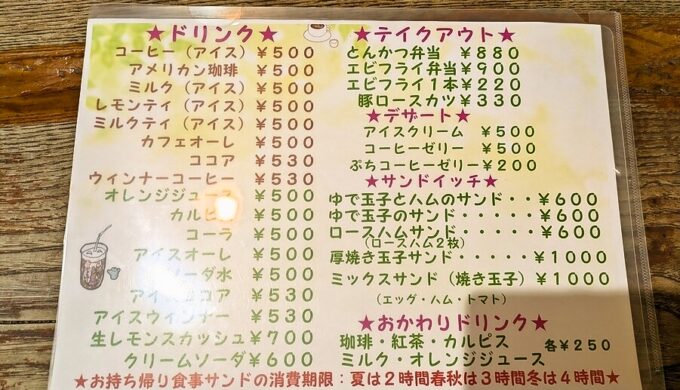 ★ドリンク★
コーヒー（アイス）￥５００
アメリカン珈琲 ￥５００
ミルク（アイス）￥５００
レモンティ（アイス）￥５００
ミルクティ（アイス）￥５００
カフェオーレ ￥５００
ココア ￥５３０
ウィンナーコーヒー ￥５３０
オレンジジュース ￥５００
カルピス ￥５００
コーラ ￥５００
アイスオーレ ￥５００
ソーダ水 ￥５００
アイスココア ￥５３０
アイスウィンナー ￥５３０
生レモンスカッシュ￥７００
クリームソーダ￥６００
★テイクアウト★
とんかつ弁当 ￥８８０
エビフライ弁当￥９００
エビフライ１本￥２２０
豚ロースカツ￥３３０
★デザート★
アイスクリーム ￥５００
コーヒーゼリー ￥５００
ぷちコーヒーゼリー￥２００
★サンドイッチ★
ゆで玉子とハムのサンド・・￥６００
ゆで玉子のサンド・・・・￥６００
ロースハムサンド・・・・￥６００
（ロースハム２枚）
厚焼き玉子サンド・・・・￥１０００
ミックスサンド（焼き玉子）￥１０００
（エッグ・ハム・トマト）
★おかわりドリンク★
珈琲・紅茶・カルピス 各￥２５０
ミルク・オレンジジュース
★お持ち帰り食事サンドの消費期限：夏は２時間春秋は３時間冬は４時間★